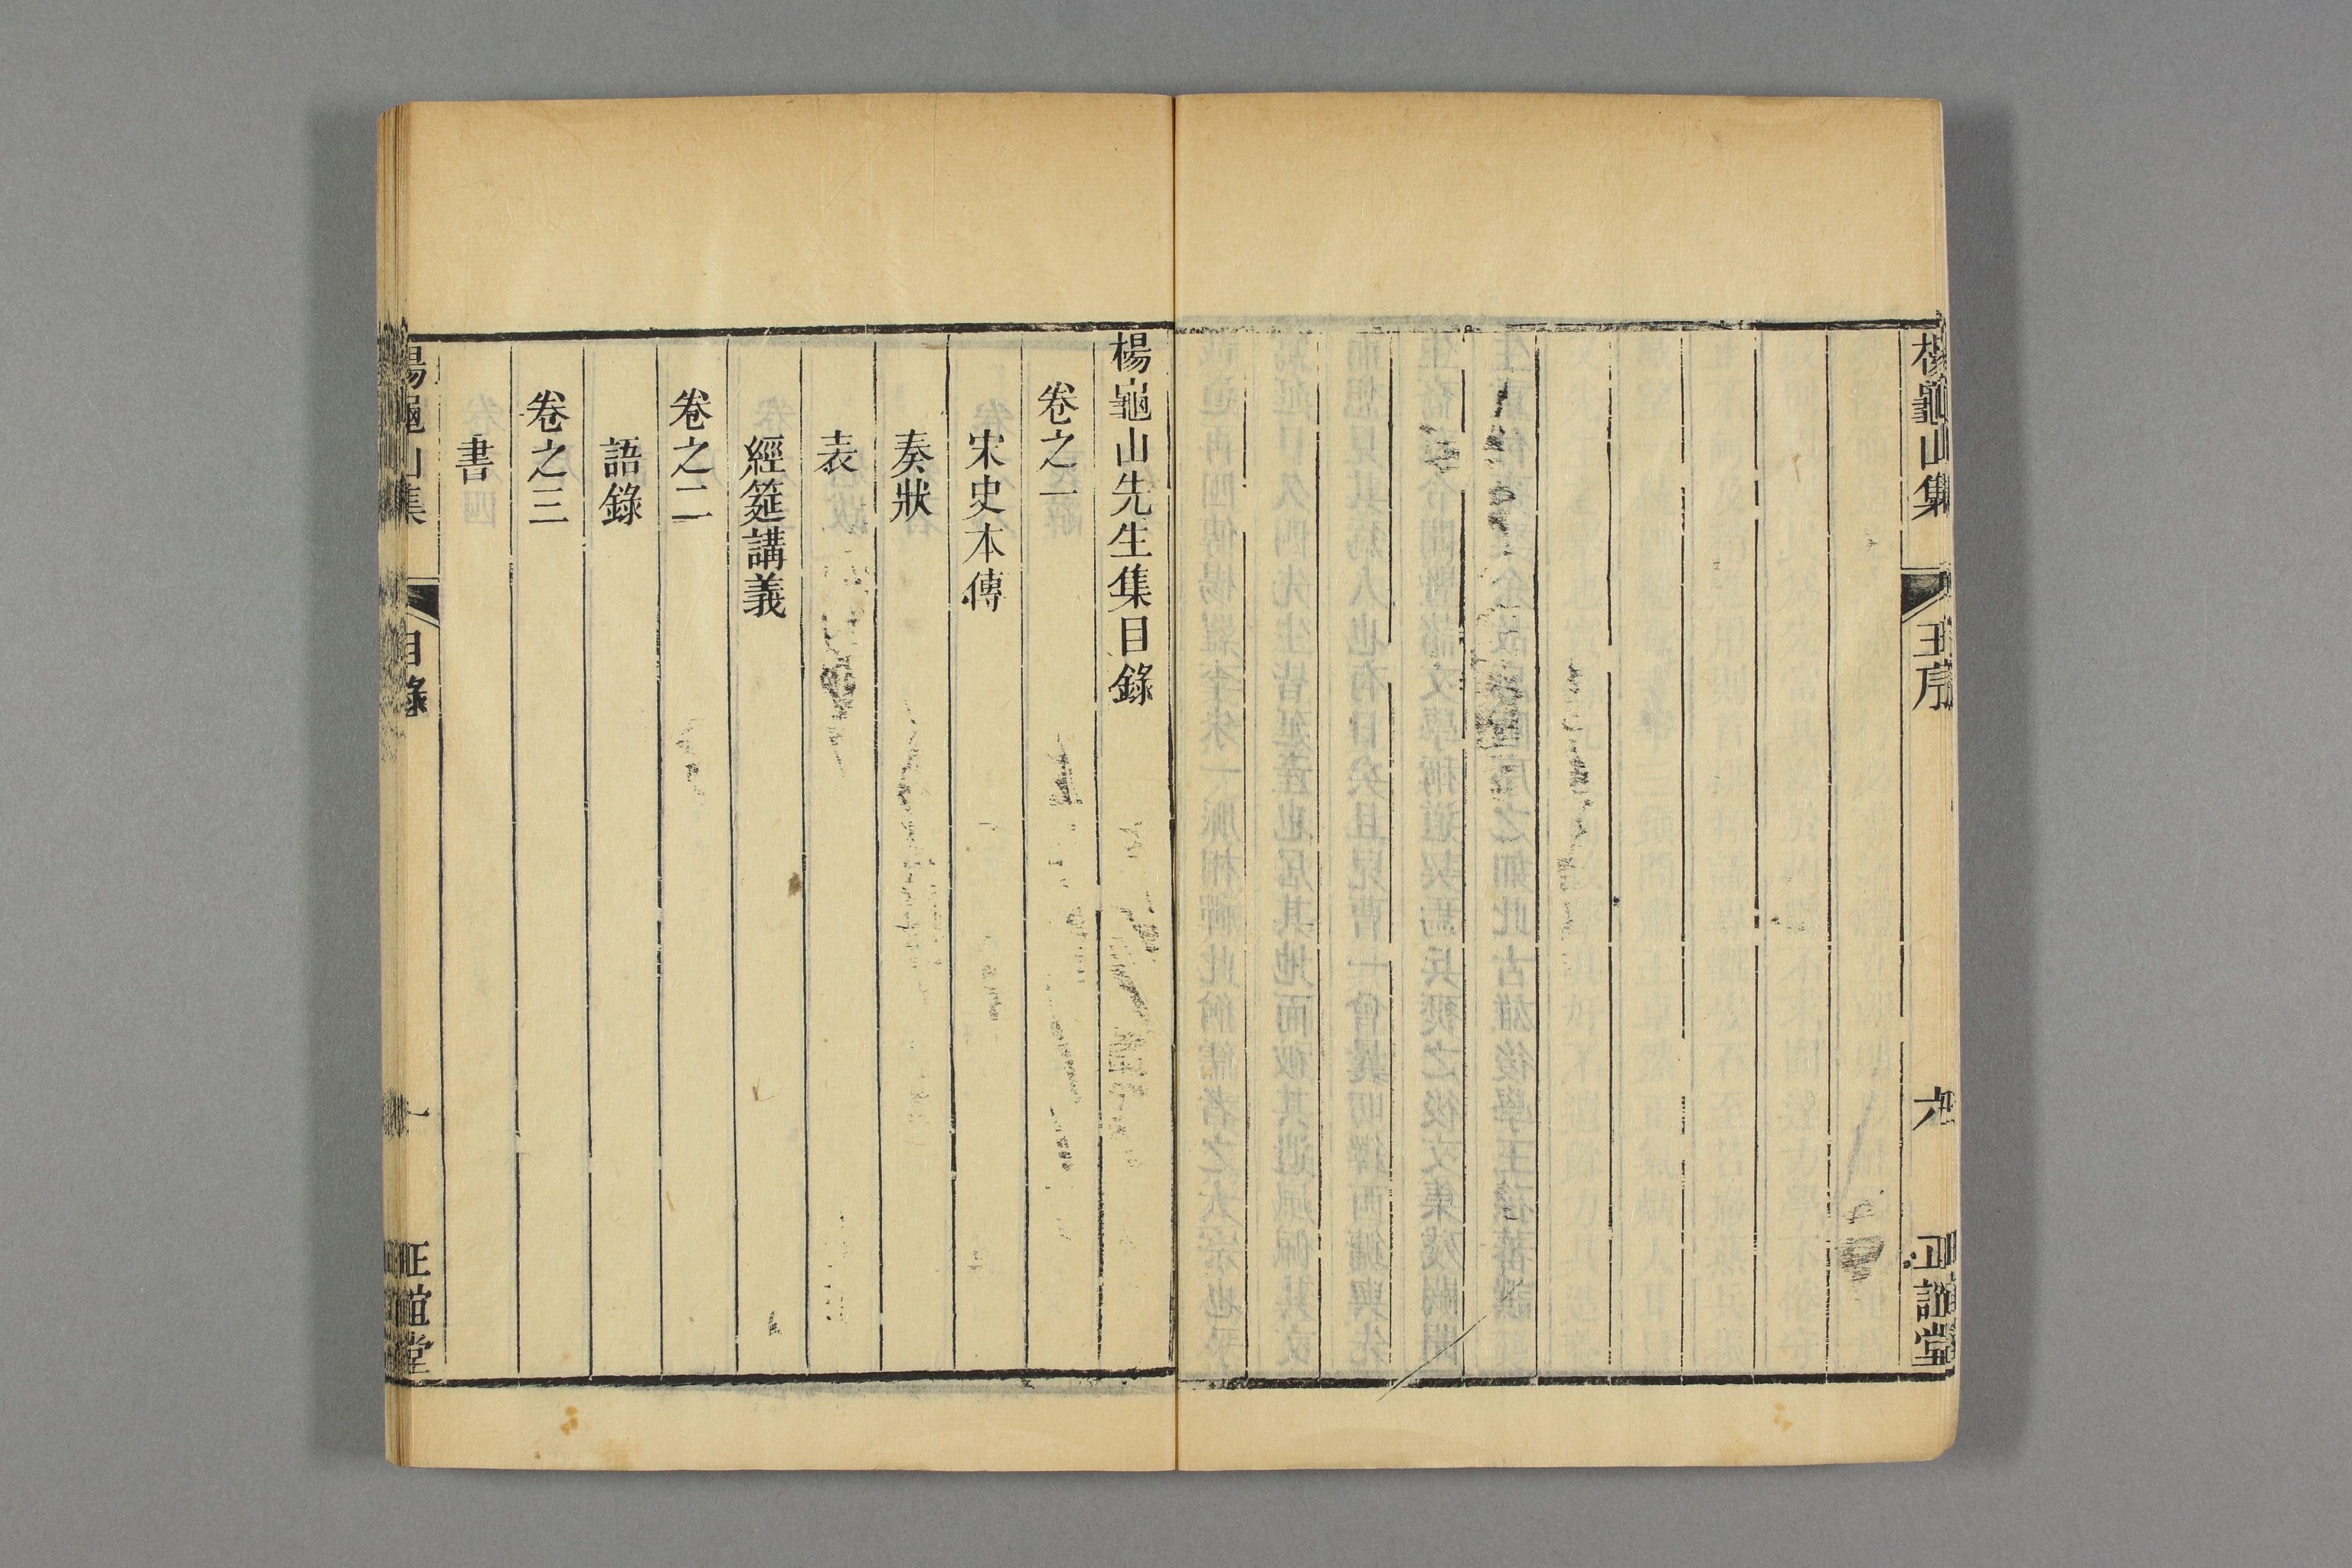 楊龜山集
王序
六
正誼堂
楊龜山先生集目錄
卷之一
宋史本傳
奏狀
表
經筵講義
卷之二
語錄
卷之三
書
楊龜山集
目錄
一
正誼堂